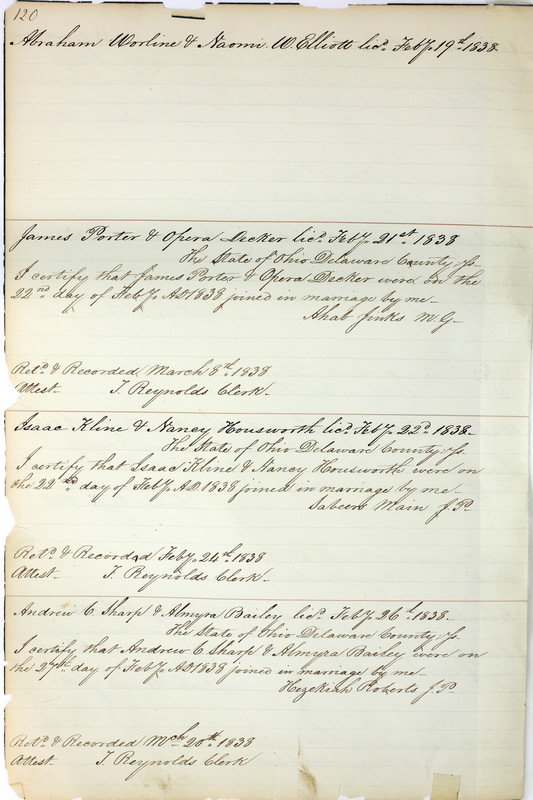 120
Abraham Worline & Naomi W. Elliott licd. Feby. 19th 1838.
James Porter & Opera Decker licd. Feby. 21st 1838
The State of Ohio Delaware County, Ss.
I certify that James Porter & Opera Decker were on the
22nd day of Feby. AD 1838 joined in marriage by me-
Ahab Jinks M. G-
Retd. & Recorded March 8th. 1838
Attest- T. Reynolds Clerk-
Isaac Kline & Nancy Housworth licd. Feby. 22d. 1838-
The State of Ohio Delaware County, Ss.
I certify that Isaac Kline & Nancy Housworth were on
the 22nd day of Feby. A.D. 1838 joined in marriage by me-
Sabeers Main J. P.
Retd. & Recorded Feby. 24th. 1838
Attest- T. Reynolds Clerk-
Andrew C Sharp & Almyra Bailey licd. Feby. 26th. 1838-
The State of Ohio Delaware County, Ss.
I certify that Andrew C Sharp & Almyra Bailey were on
the 27th day of Feby. AD 1838 joined in marriage by me-
Hezekiah Roberts J. P.
Retd. & Recorded Mch 20th. 1838
Attest T. Reynolds Clerk